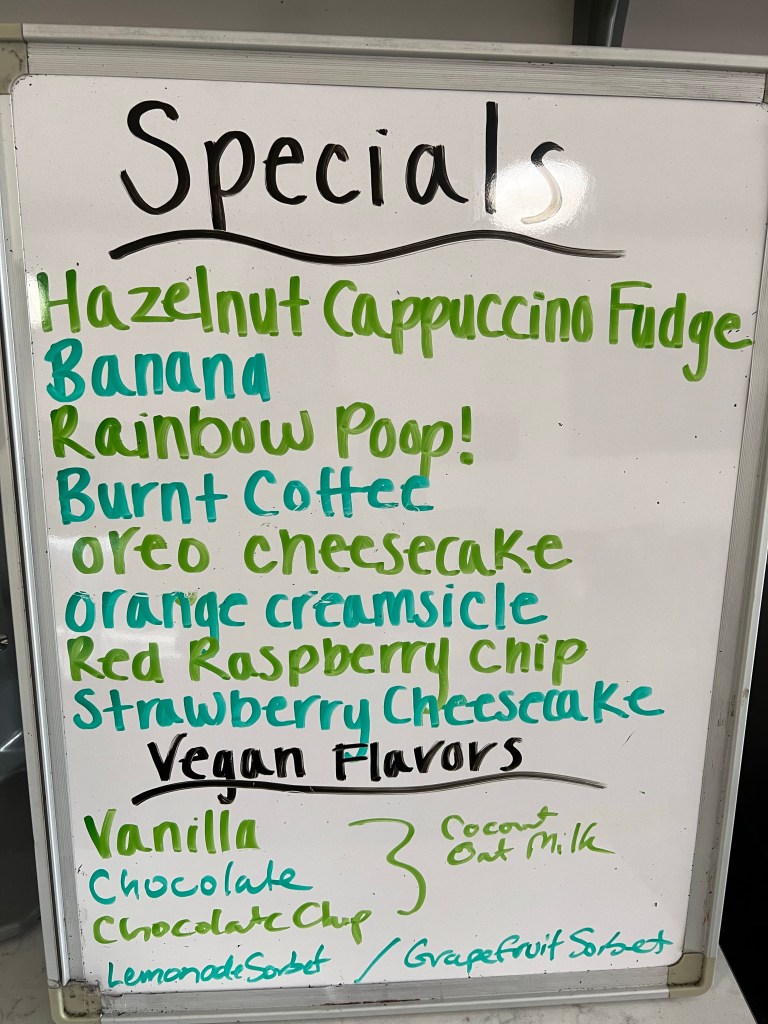 Specials
Hazelnut Cappuccino Fudge
Banana
Rainbow Poop!
Burnt Coffee
oreo cheesecake
orange creamsicle
Red Raspberry chip
Strawberry Cheesecake
Vegan Flavors
Vanilla
Chocolate
Chocolate Chip
Coconut
Oat Milk
Lemonade Sorbet / Grapefruit Sorbet